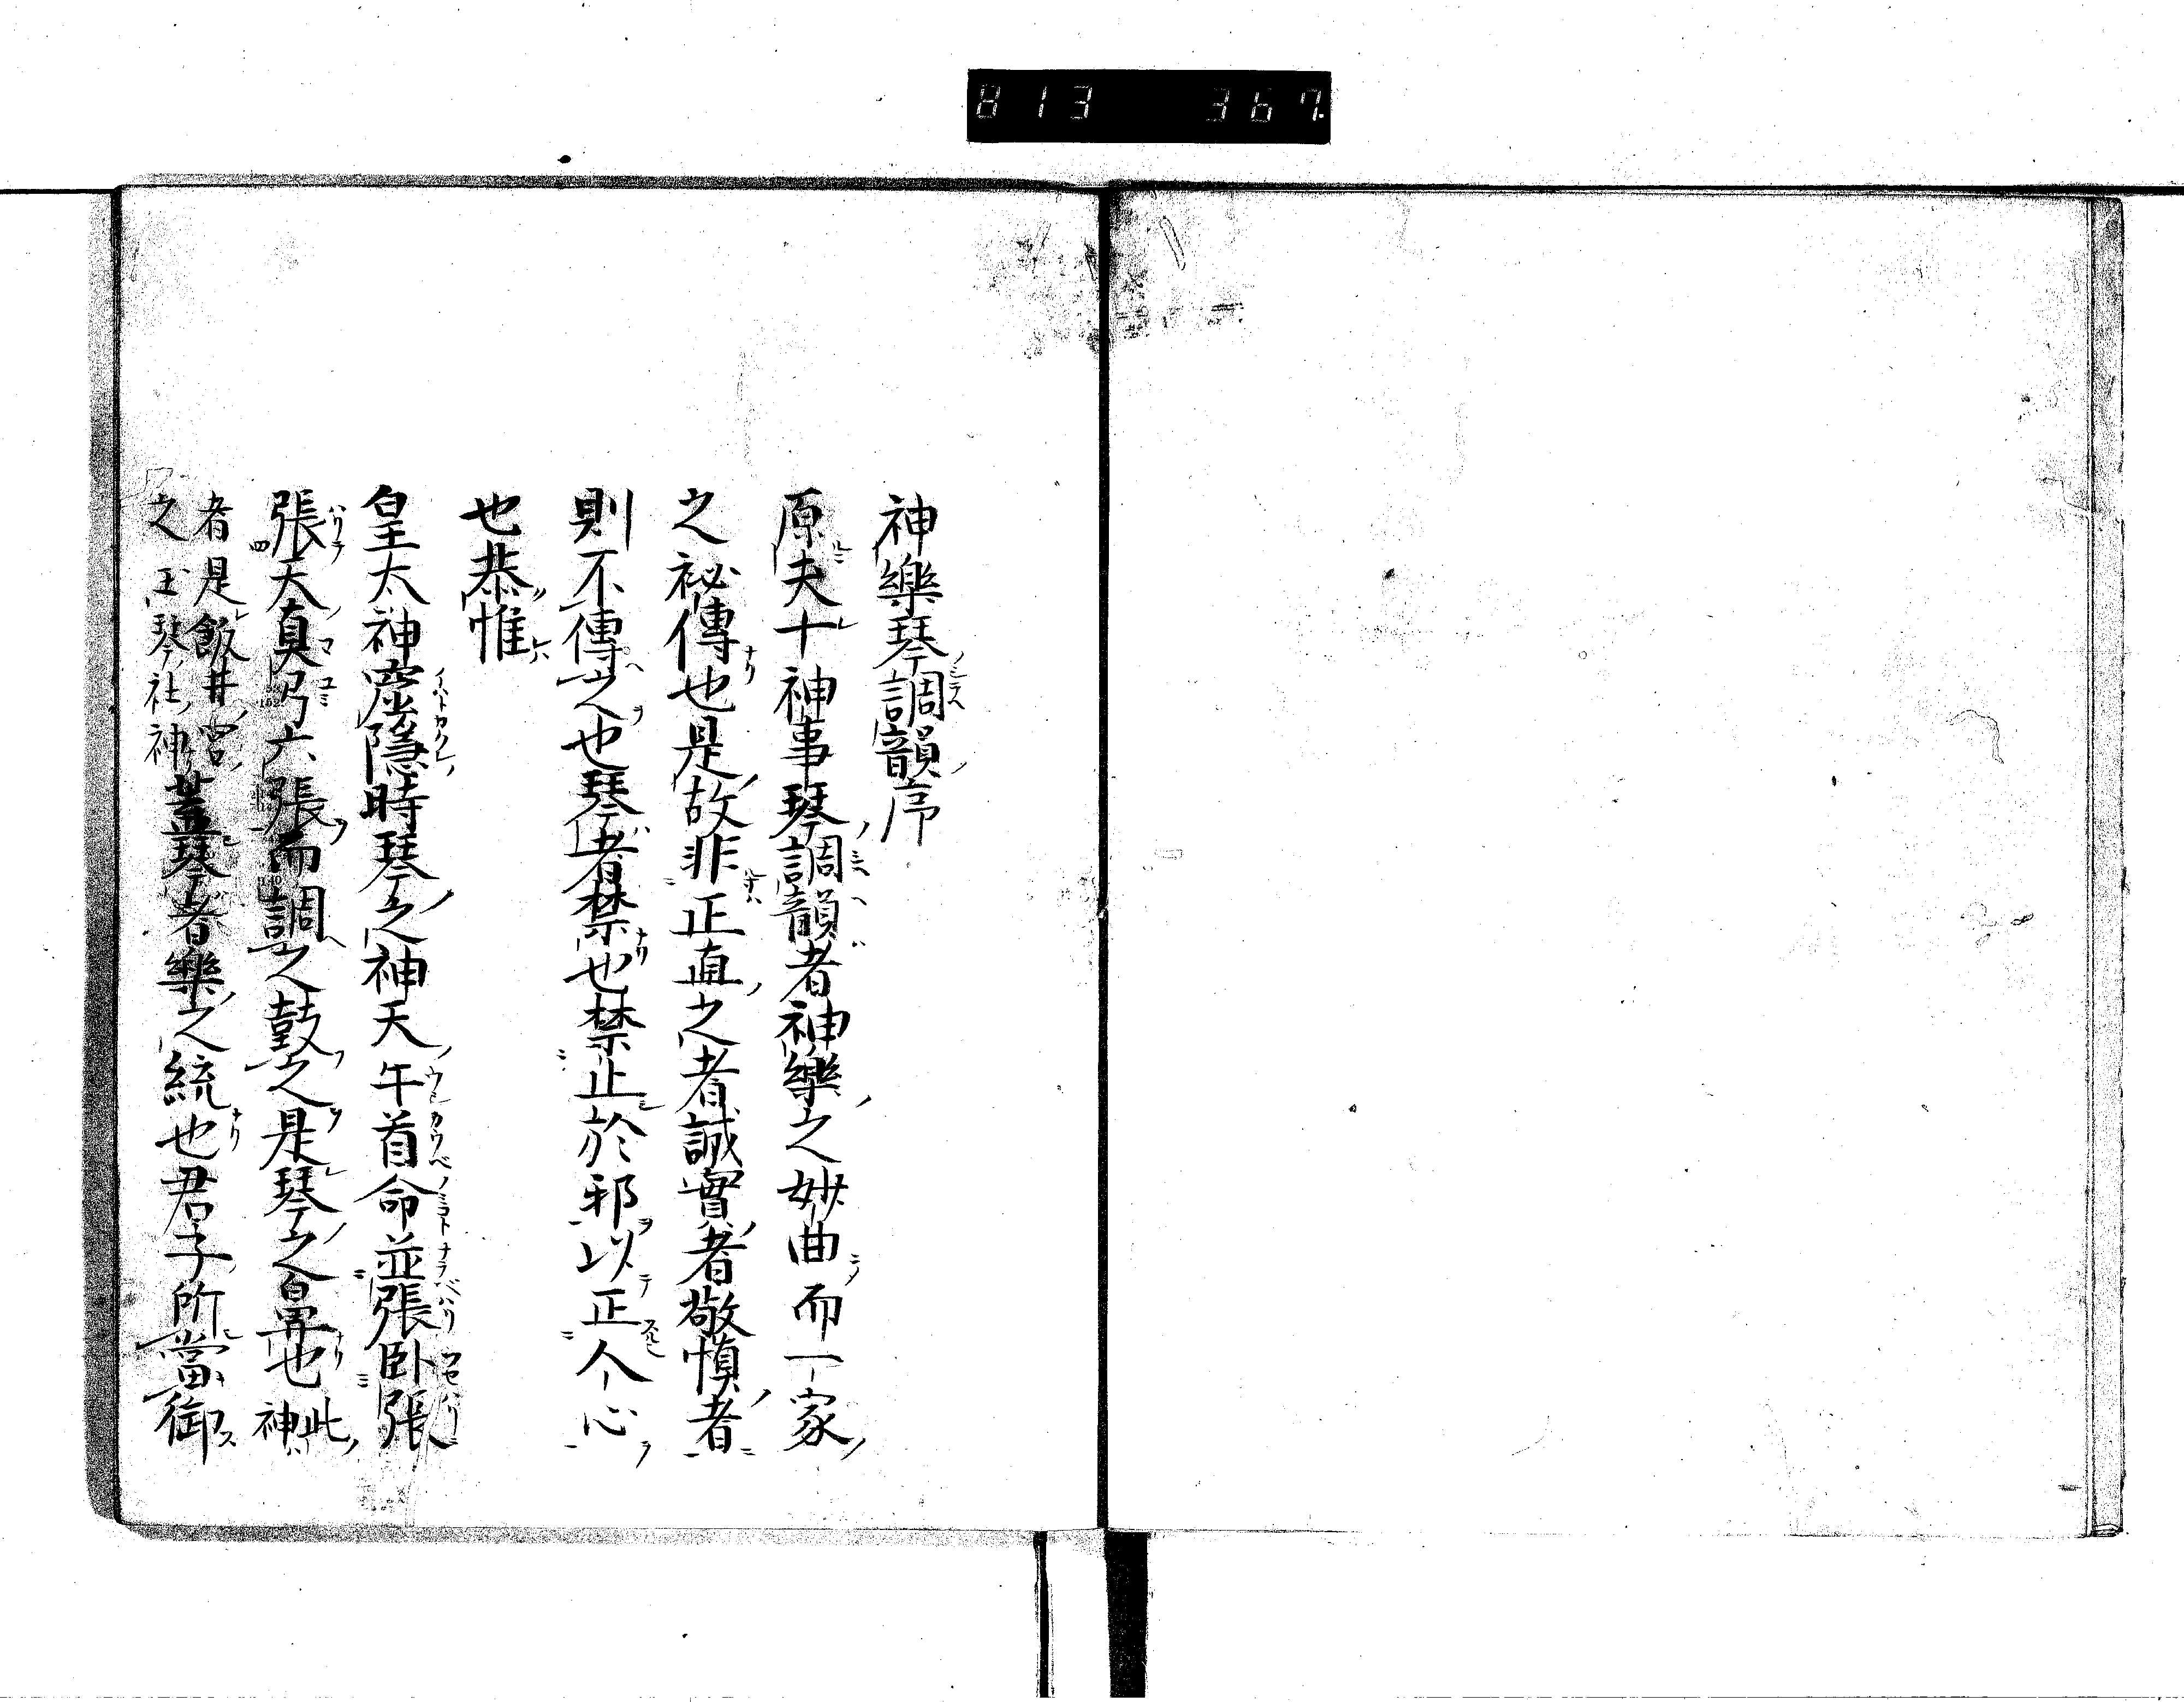 813 367
神樂琴調韻序
原夫十神事琴調韻者神樂之妙曲而一家
之祕傳也是故非正直之者誠實者敬慎者
則不傳之也琴者禁也禁止於邪以正人心
也恭惟
皇太神窟隱時琴之神天午首命並張臥張
張天真弓六張而調之鼓之是琴之鼻也此神
者是飯井宮之玉琴社神葢琴者樂之統也君子所當御